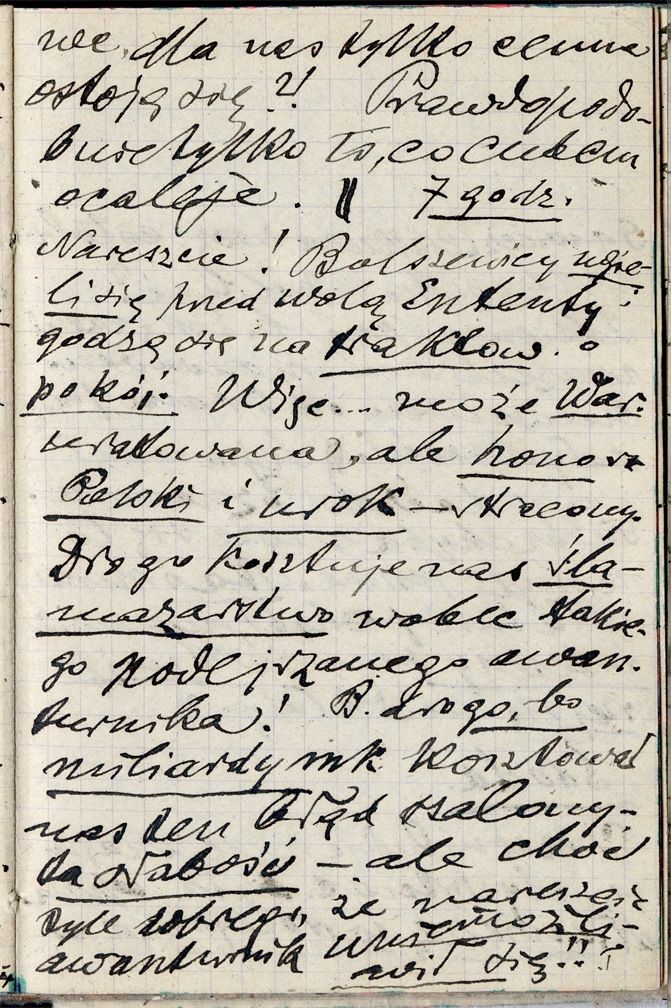 we, dla nas tylko cenne
ostoją się?! Prawdopodo-
bnie tylko to, co cudem
ocaleje. || 7 godz.
Nareszcie! Bolszewicy ugię-
li się przed wolą Ententy i
godzą się na traktow. o
pokój. Więc... może War.
uratowana, ale honor
Polski i urok — stracony.
Drogo kosztuje nas śla-
mazarstwo wobec takie-
go podejrzanego awan-
turnika! B. drogo, bo
miliardy mk kosztował
nas ten błąd szalony -
ta słabość — ale choć
tyle dobrego, że nareszcie
awanturnik uniemożli-
wił się!!!